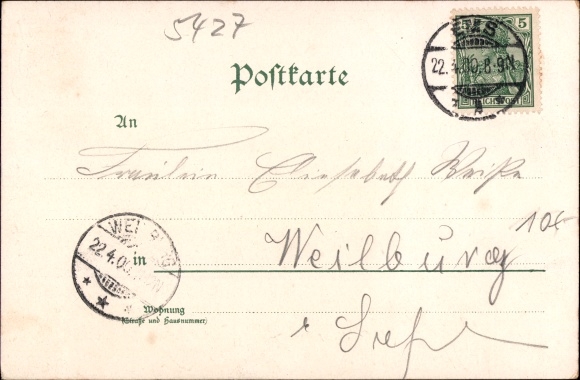 5427
EMS
22.4.00.8-9N
5
Postkarte
An
Fräulein Elisabeth Weiße
WEILBURG
22.4.00
in
Weilburg
10€
Wohnung
(Straße und Hausnummer)